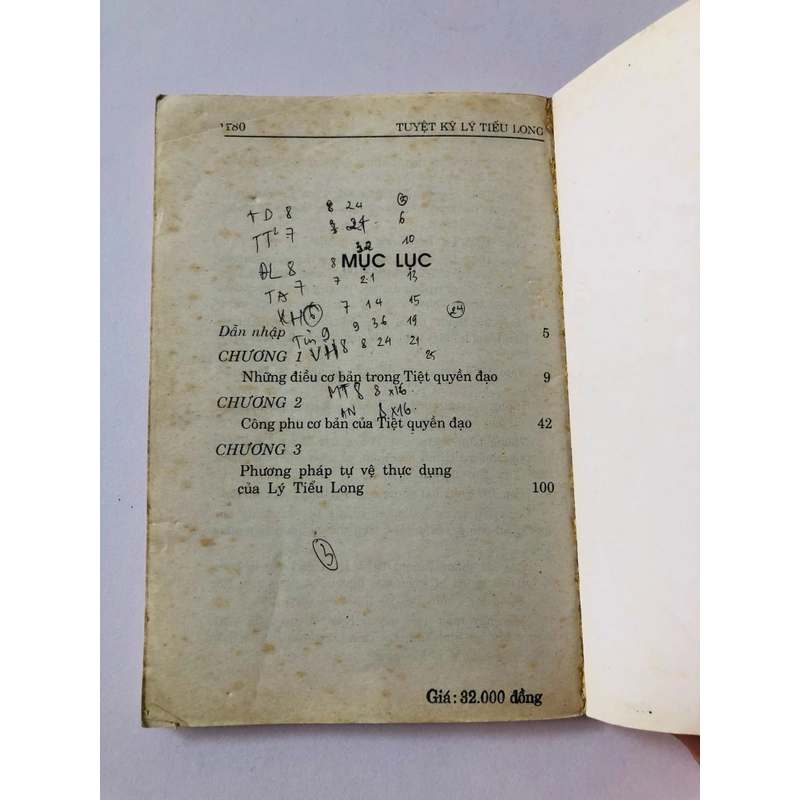 180 TUYỆT KỸ LÝ TIỂU LONG
TD 8 8 24
TT 7 24 6
32 10
ĐL 8 8
MỤC LỤC
TA 7 7 21 13
KH 6 7 14 15 24
Dẫn nhập 5
9 9 36 19
CHƯƠNG 1
VH 8 8 24 21
25
Những điều cơ bản trong Tiệt quyền đạo 9
MT 8 8 x16
CHƯƠNG 2
AN 8 x16
Công phu cơ bản của Tiệt quyền đạo 42
CHƯƠNG 3
Phương pháp tự vệ thực dụng
của Lý Tiểu Long 100
3
Giá: 32.000 đồng